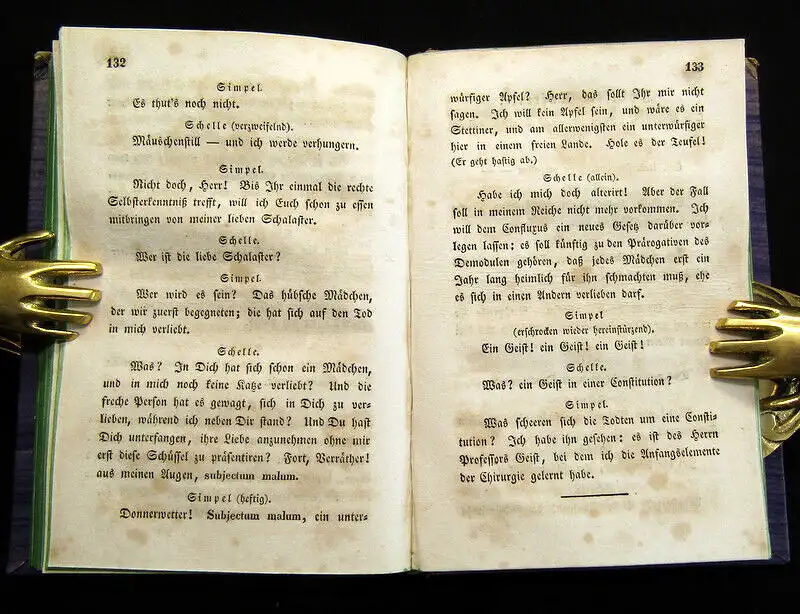 132
Simpel.
Es thut's noch nicht.
Schelle (verzweifelnd).
Mäuschenstill — und ich werde verhungern.
Simpel.
Nicht doch, Herr! Bis Ihr einmal die rechte
Selbsterkenntniß trefft, will ich Euch schon zu essen
mitbringen von meiner lieben Schalaster.
Schelle.
Wer ist die liebe Schalaster?
Simpel.
Wer wird es sein? Das hübsche Mädchen,
der wir zuerst begegneten; die hat sich auf den Tod
in mich verliebt.
Schelle.
Was? In Dich hat sich schon ein Mädchen,
und in mich noch keine Katze verliebt? Und die
freche Person hat es gewagt, sich in Dich zu ver-
lieben, während ich neben Dir stand? Und Du hast
Dich unterfangen, ihre Liebe anzunehmen ohne mir
erst diese Schüssel zu präsentiren? Fort, Verräther!
aus meinen Augen, subjectum malum.
Simpel (heftig).
Donnerwetter! Subjectum malum, ein unter-
133
würfiger Apfel? Herr, das sollt Ihr mir nicht
sagen. Ich will kein Apfel sein, und wäre es ein
Stettiner, und am allerwenigsten ein unterwürfiger
hier in einem freien Lande. Hole es der Teufel!
(Er geht hastig ab.)
Schelle (allein).
Habe ich mich doch alterirt! Aber der Fall
soll in meinem Reiche nicht mehr vorkommen. Ich
will dem Confluxus ein neues Gesetz darüber vor-
legen lassen: es soll künftig zu den Prärogativen des
Demodulen gehören, daß jedes Mädchen erst ein
Jahr lang heimlich für ihn schmachten muß, ehe
es sich in einen Andern verlieben darf.
Simpel
(erschrocken wieder hereinstürzend).
Ein Geist! ein Geist! ein Geist!
Schelle.
Was? ein Geist in einer Constitution?
Simpel.
Was scheeren sich die Todten um eine Consti-
tution? Ich habe ihn gesehen: es ist des Herrn
Professors Geist, bei dem ich die Anfangselemente
der Chirurgie gelernt habe.